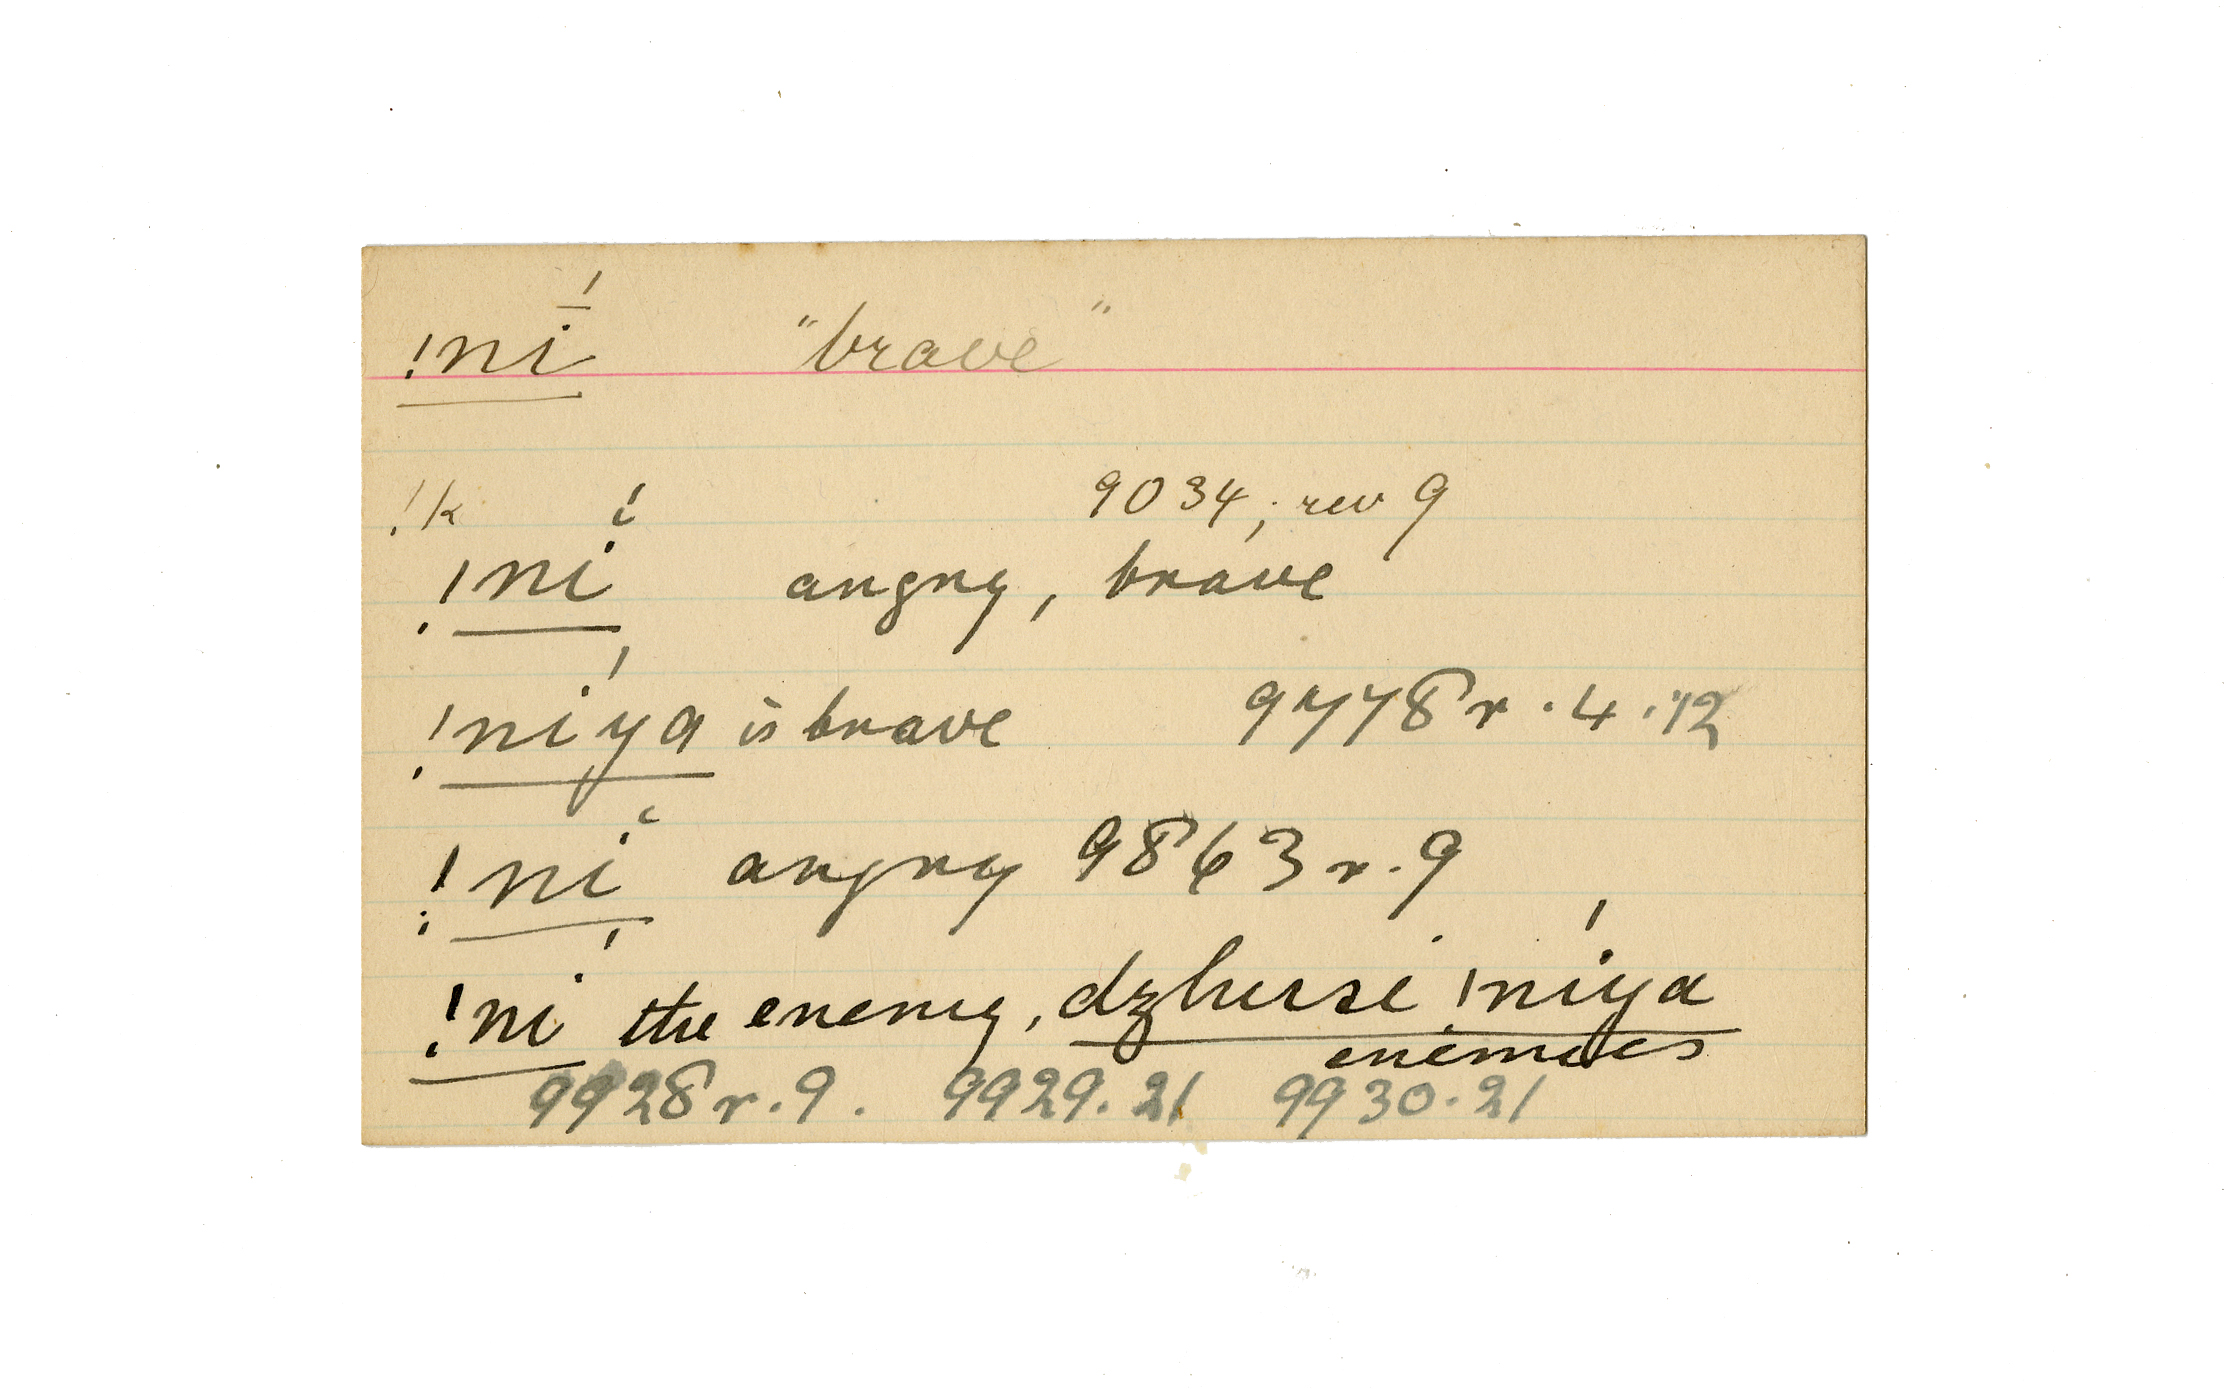 !ní̱ "brave"
!k 9034, rev 9
!ni angry, brave
!niya is brave 9778r.4.12
!ni angry 9863r.9
!ni the enemy, dzhursi !niya
enemies
9928r.9. 9929.21 9930.21